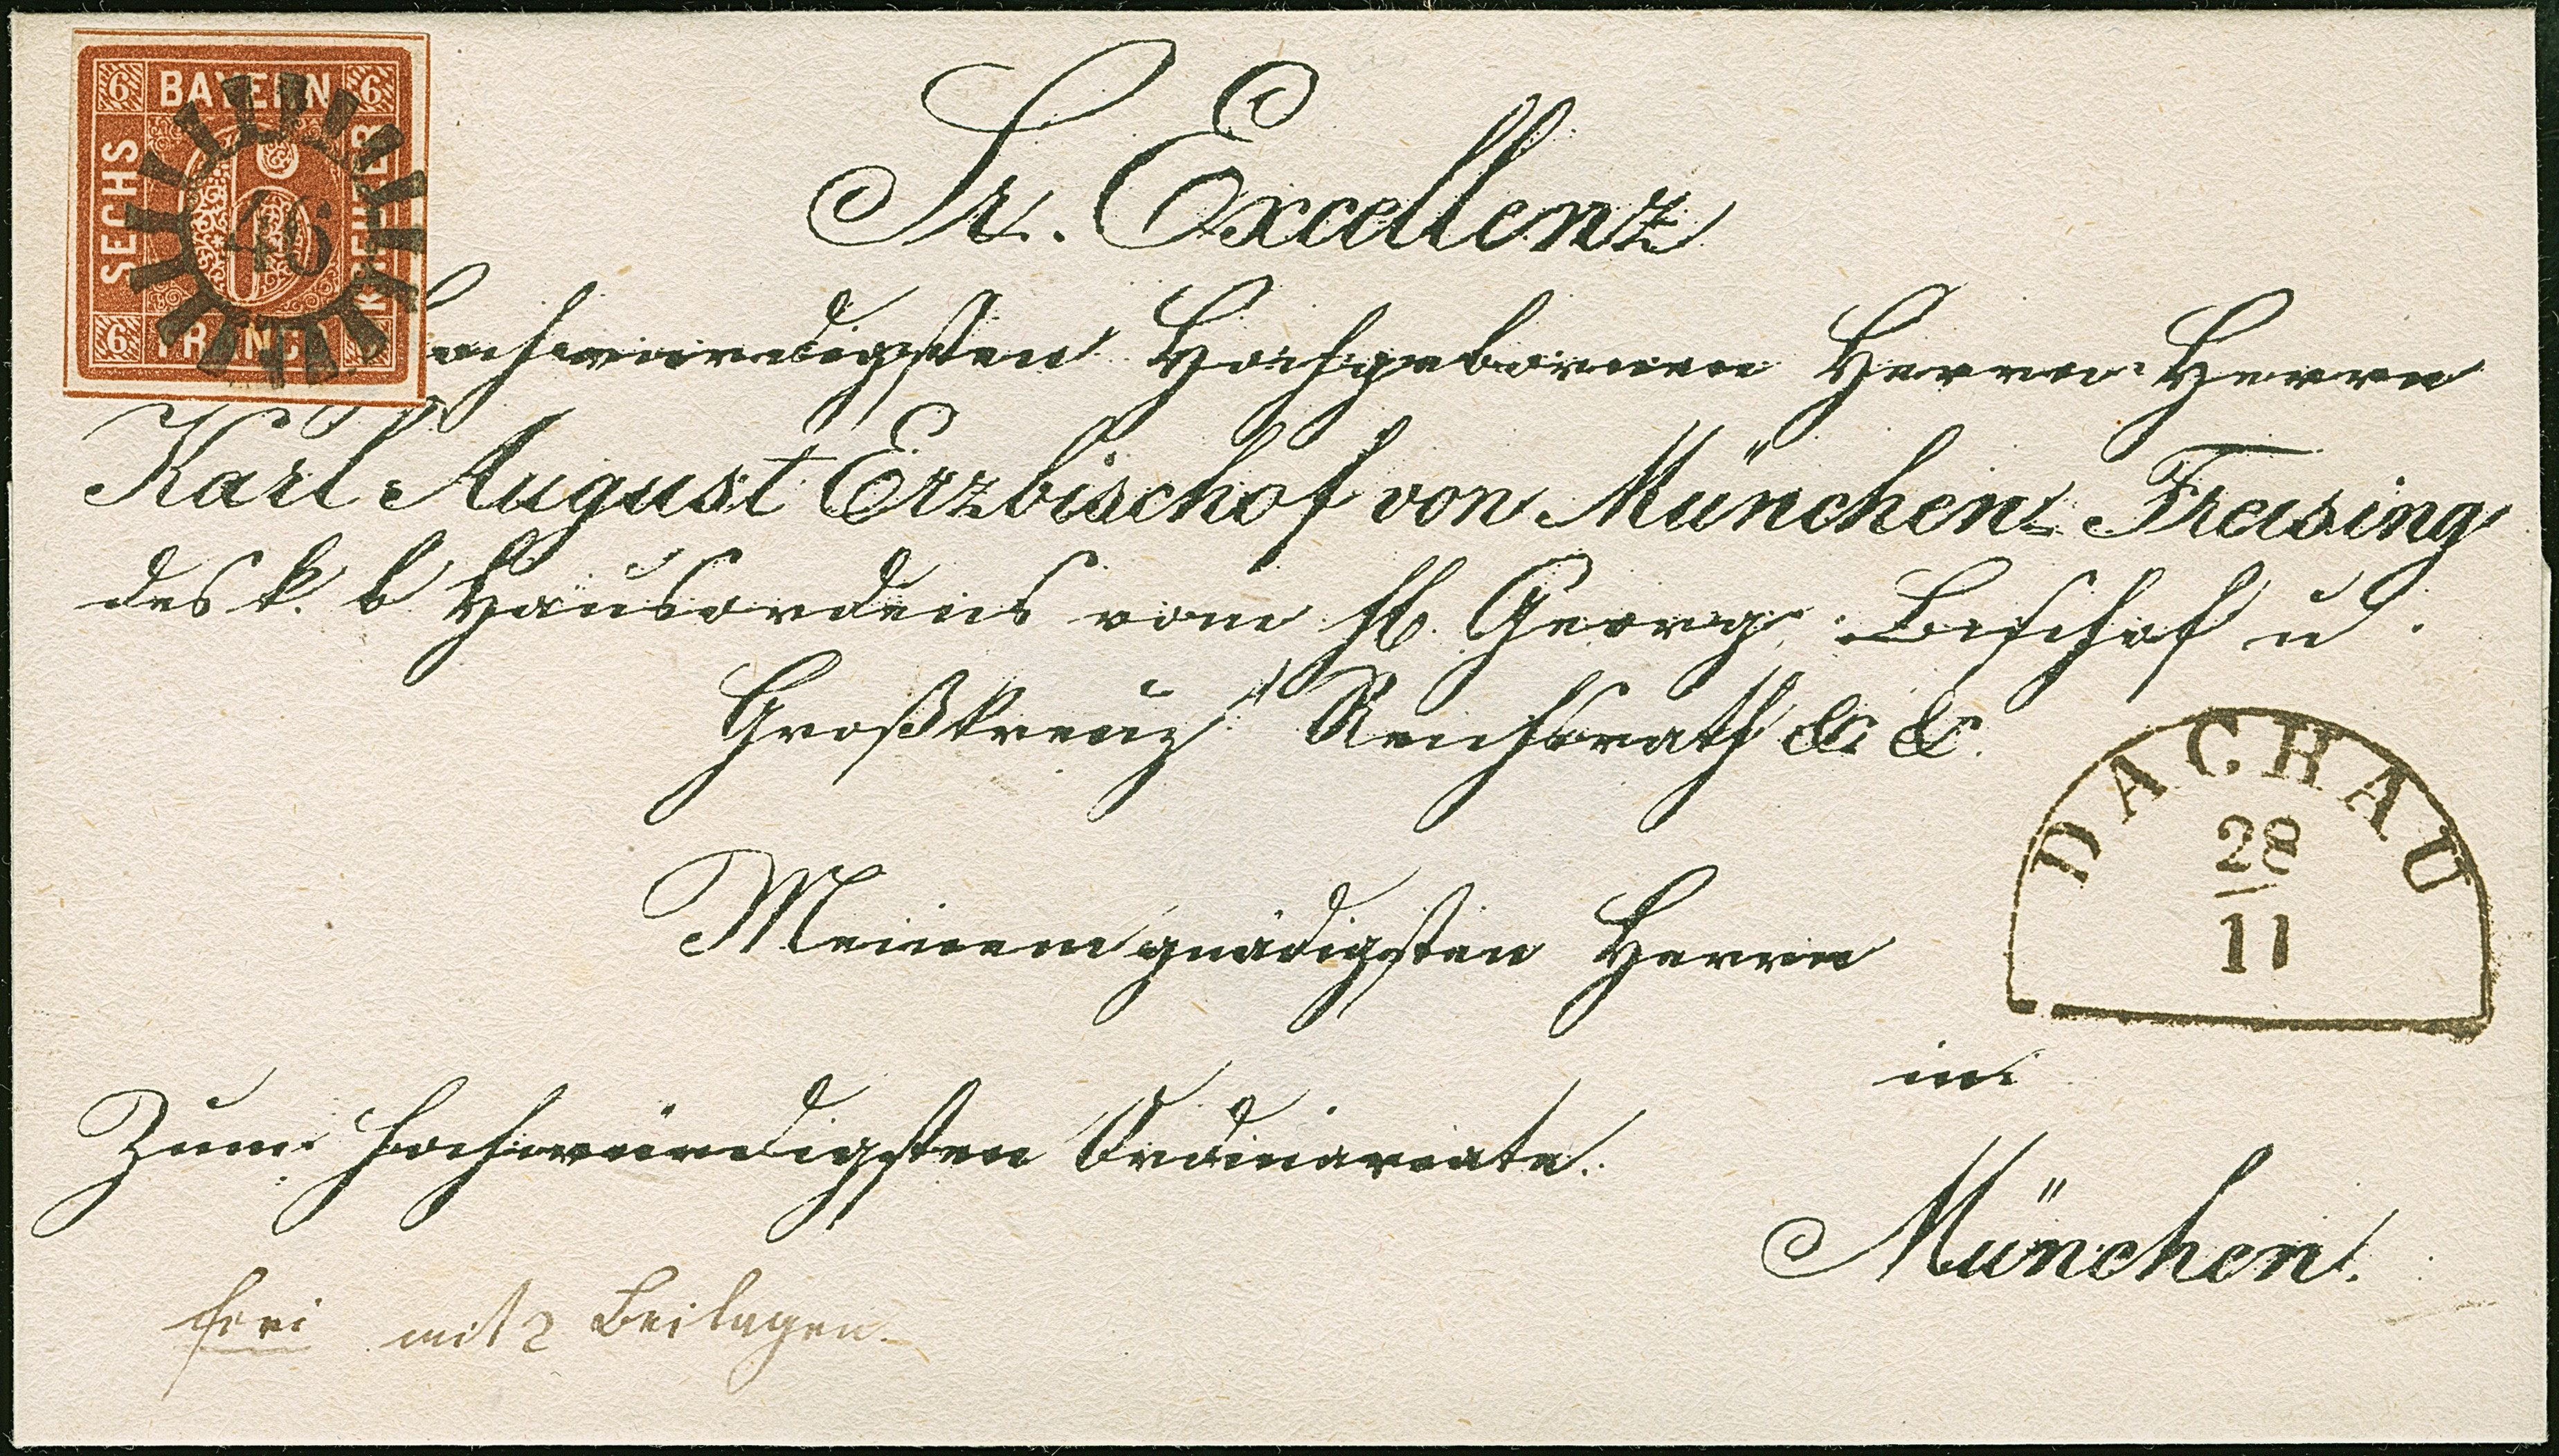 6 BAYERN 6
SECHS
KREUZER
46
6 FRANCO
Sr. Excellenz
Hochwürdigsten Hochgebornen Herrn Herrn
Karl August Erzbischof von München-Freising
des k. b Hausordens vom hl. Georg Bischof u.
Großkreuz Reichsrath &c &c.
DACHAU
28
11
Meinem gnädigsten Herrn
in
Zum hochwürdigsten Ordinariate.
München.
frei mit 2 Beilagen.